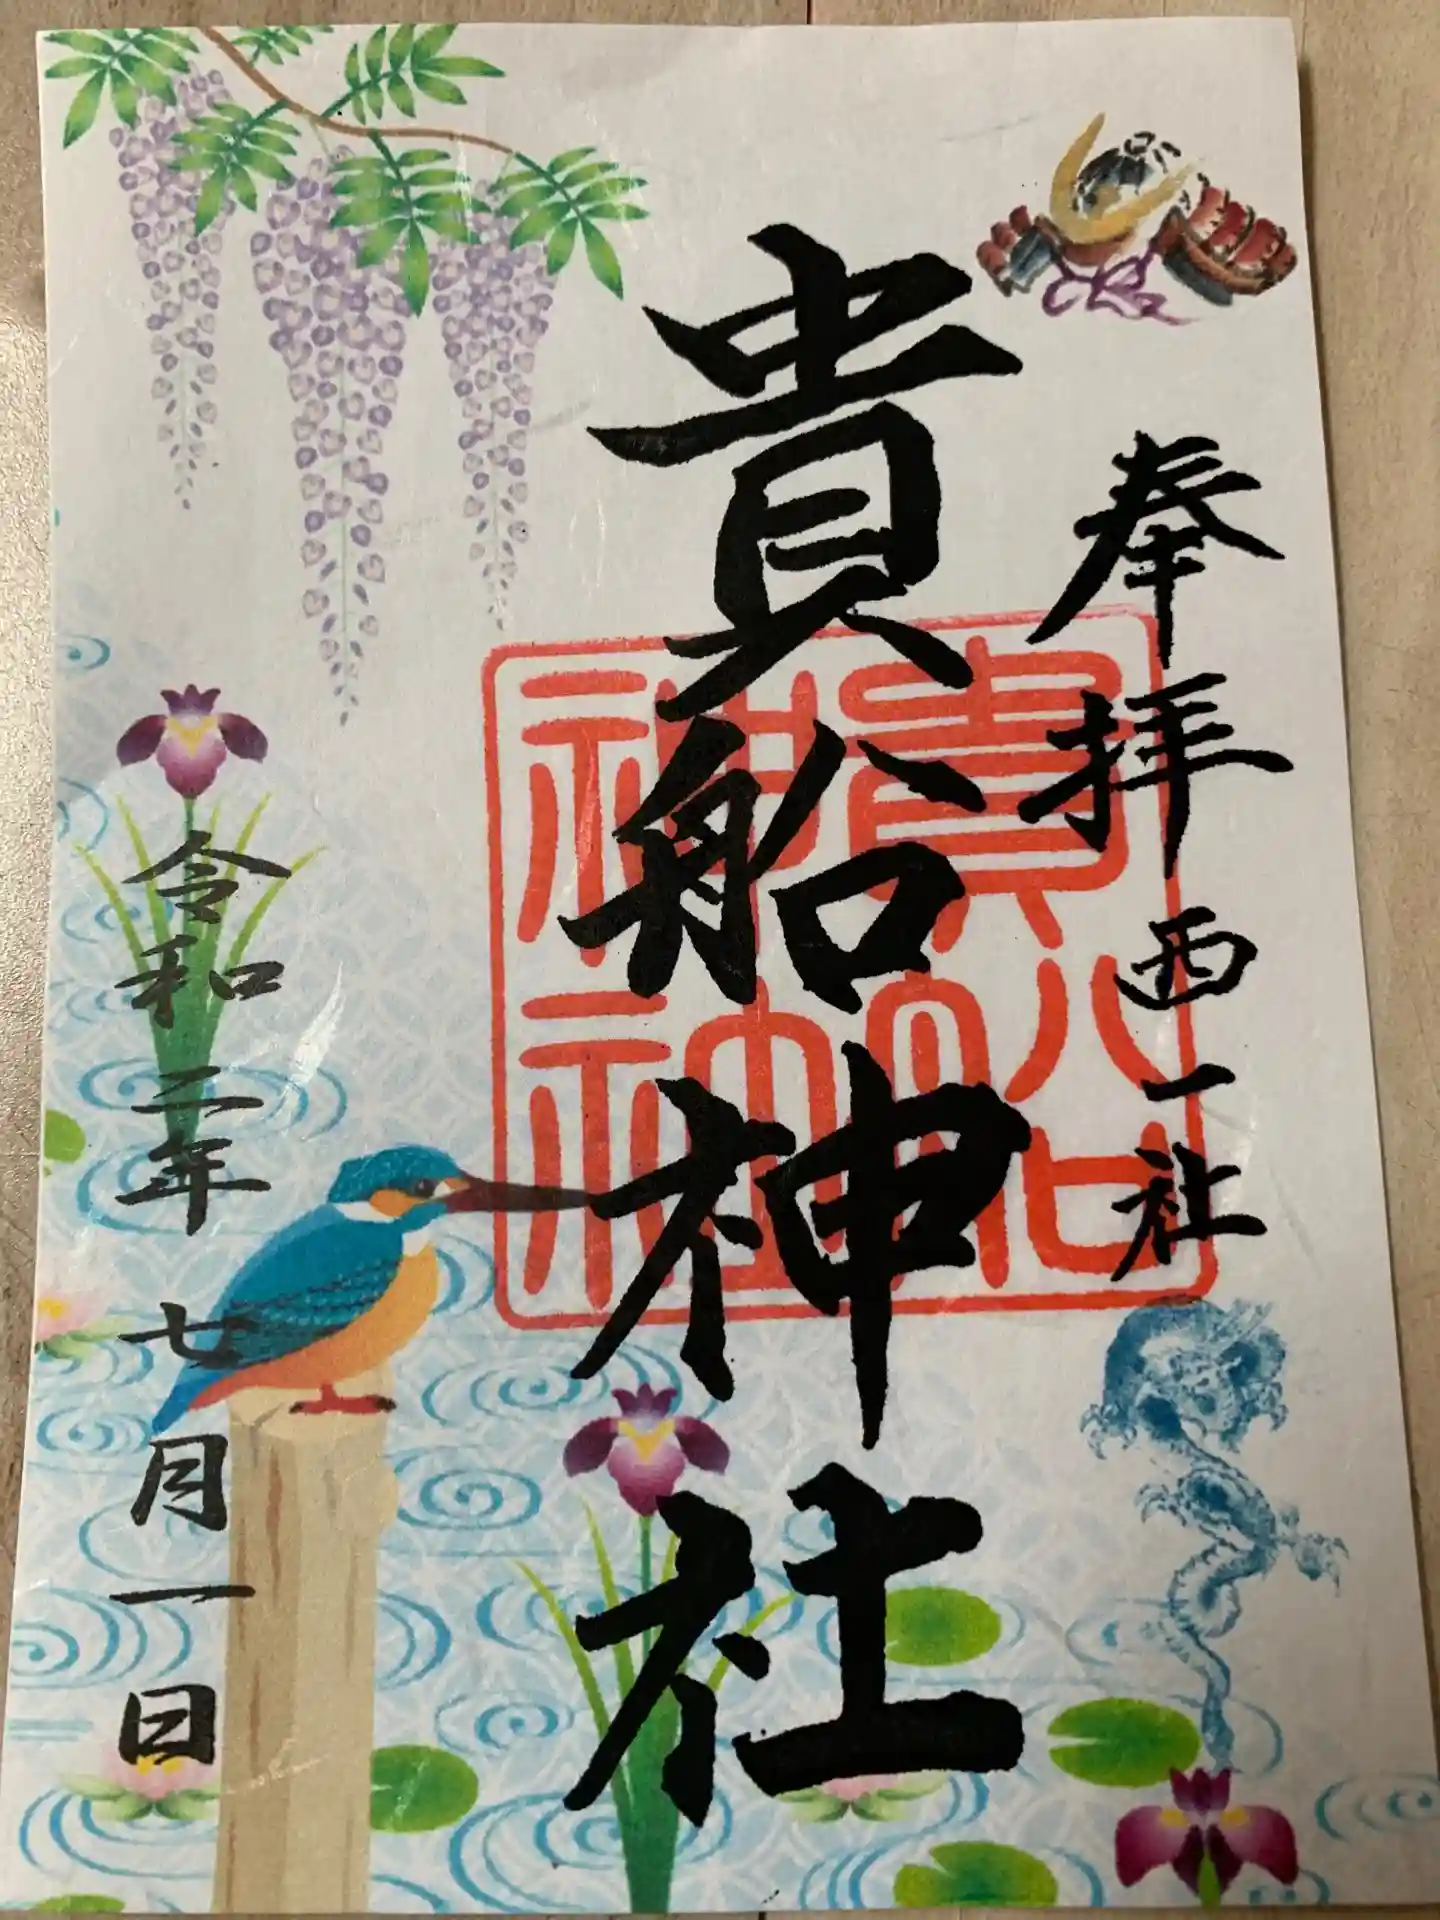 奉拝 西一社
貴船神社
令和二年 七月一日
貴船
神社